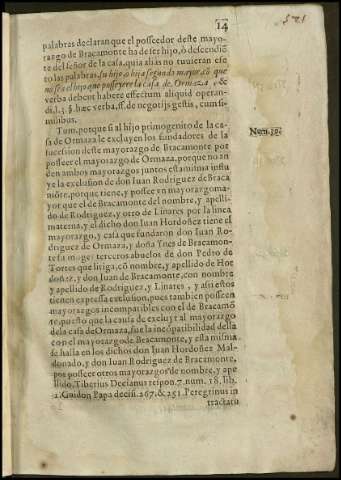 14
521
palabras declaran que el posseedor deste mayo-
razgo de Bracamonte ha de ser hijo, ò descendiẽ
te del señor de la casa, quia aliàs no tuvieran efe
to las palabras, su hijo ò hija segunda mayor, cõ que
no sea el hijo que posseyere la casa de Ormaza, &
verba debent habere effectum aliquid operan-
di, l. 3. § hæc verba, ff. de negotijs gestis, cum si-
milibus.
Tum, porque si al hijo primogenito de la ca-
sa de Ormaza le excluyen los fundadores de la
sucession deste mayorazgo de Bracamonte por
posseer el mayorazgo de Ormaza, porque no an
den ambos mayorazgos juntos esta misma influ
ye la exclusion de don Iuan Rodriguez de Braca
mõte, porque tiene, y possee vn mayorazgo ma-
yor que el de Bracamonte del nombre, y apelli-
do de Rodriguez, y otro de Linares por la linea
materna, y el dicho don Iuan Hordoñez tiene el
mayorazgo, y casa que fundaron don Iuan Ro-
driguez de Ormaza, y doña Ynes de Bracamon-
te su muger terceros abuelos de don Pedro de
Torres que litiga, cõ nombre, y apellido de Hor
doñez, y don Iuan de Bracamonte, con nombre
y apellido de Rodriguez, y Linares, y assi estos
tienen expressa exclusion, pues tambien posseen
mayorazgos incompatibles con el de Bracamõ
te, puesto que la causa de excluyr al mayorazgo
de la casa de Ormaza, fue la incõpatibilidad della
con el mayorazgo de Bracamonte, y esta misma
se halla en los dichos don Iuan Hordoñez Mal-
donado, y don Iuan Rodriguez de Bracamonte,
por posseer otros mayorazgos de nombre, y ape
llido, Tiberius Decianus respon. 7. num. 18. lib.
2. Guidon Papa decis. 267. & 251. Peregrinus in
tractatu
Num. 39.